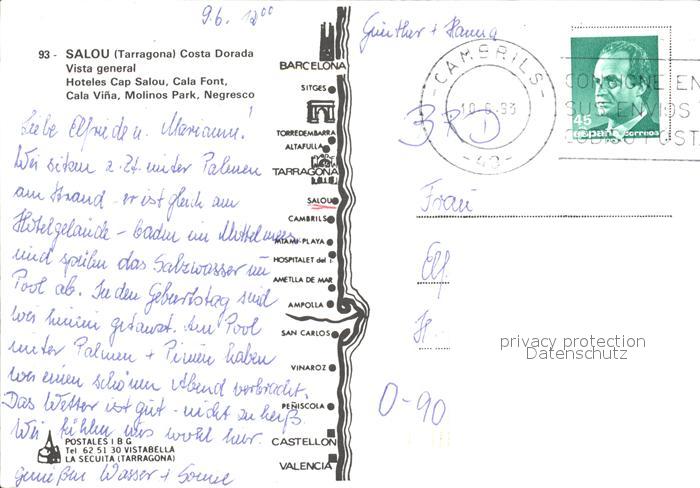 9.6. 18°°
Günther + Hanna
93 - SALOU (Tarragona) Costa Dorada
Vista general
Hoteles Cap Salou, Cala Font,
Cala Viña, Molinos Park, Negresco
Liebe Elfriede u. Mariann!
Wir sitzen z. Zt. unter Palmen
am Strand - er ist gleich am
Hotelgelände - baden im Mittelmeer
und spülen das Salzwasser im
Pool ab. In den Geburtstag sind
wir hinein getanzt. Am Pool
unter Palmen + Pinien haben
wir einen schönen Abend verbracht.
Das Wetter ist gut - nicht zu heiß.
Wir fühlen uns wohl hier.
genießen Wasser + Sonne
POSTALES I B G
Tel 62 51 30 VISTABELLA
LA SECUITA (TARRAGONA)
BARCELONA
SITGES
TORREDEMBARRA
ALTAFULLA
TARRAGONA
SALOU
CAMBRILS
MIAMI-PLAYA
HOSPITALET del I.
AMETLLA DE MAR
AMPOLLA
SAN CARLOS
VINAROZ
PEÑISCOLA
CASTELLON
VALENCIA
-CAMBRILS-
10.6.93
-43-
CONSIGNE EN
SUS ENVIOS
CODIGO POSTA
45
españa correos
BRD
Frau
Elf
H.
privacy protection
Datenschutz
0-90